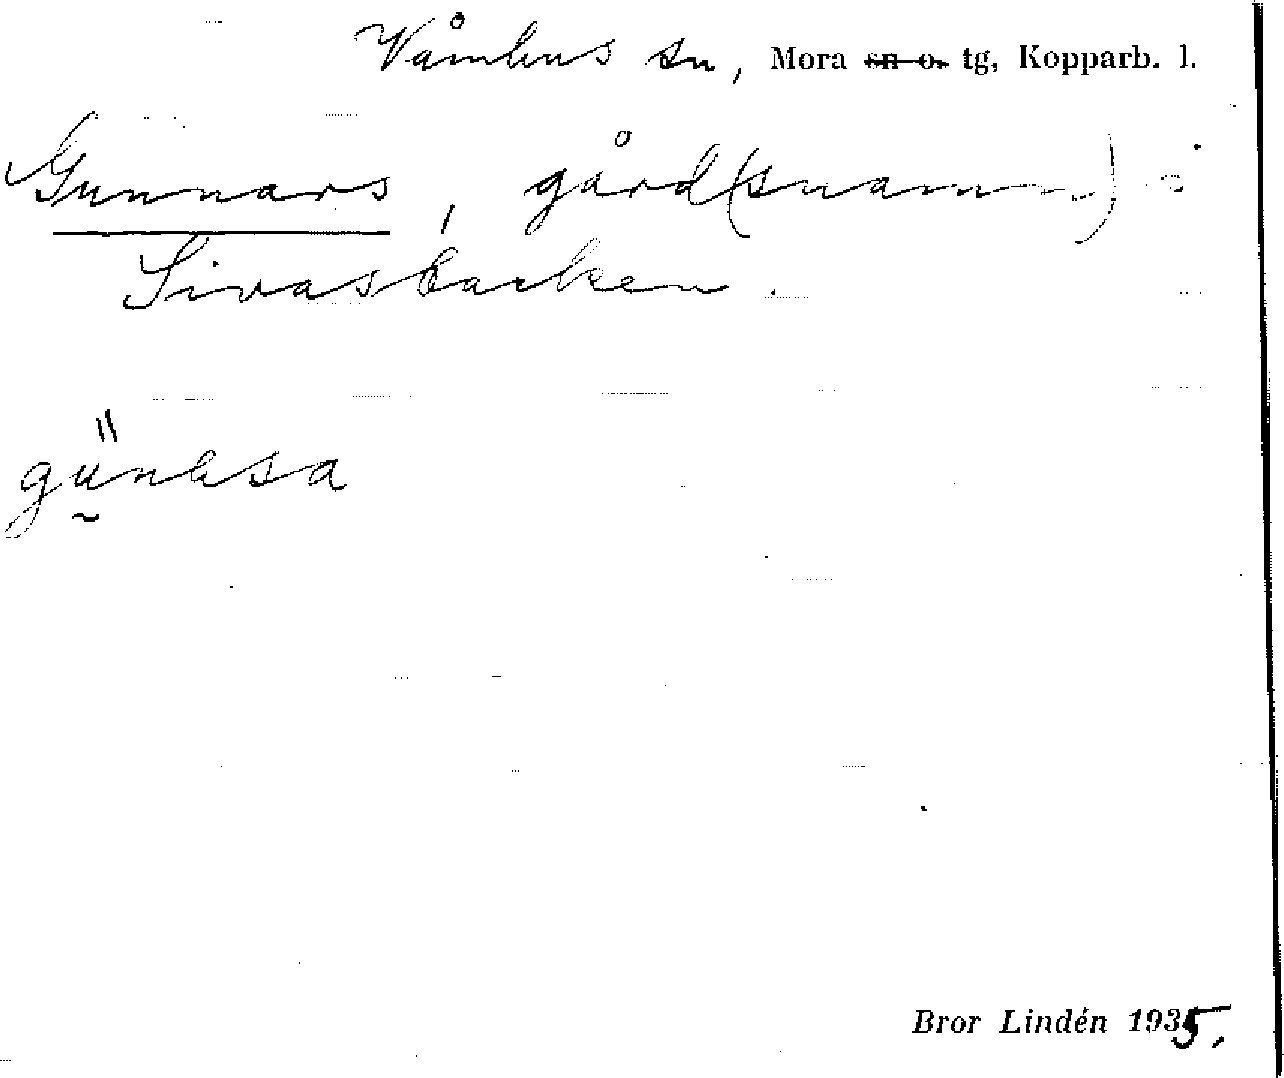 Våmhus sn, Mora sn o. tg, Kopparb. l.
Gunnars, gård(snamn) i
Sivasbacken.
Bror Lindén 1935.